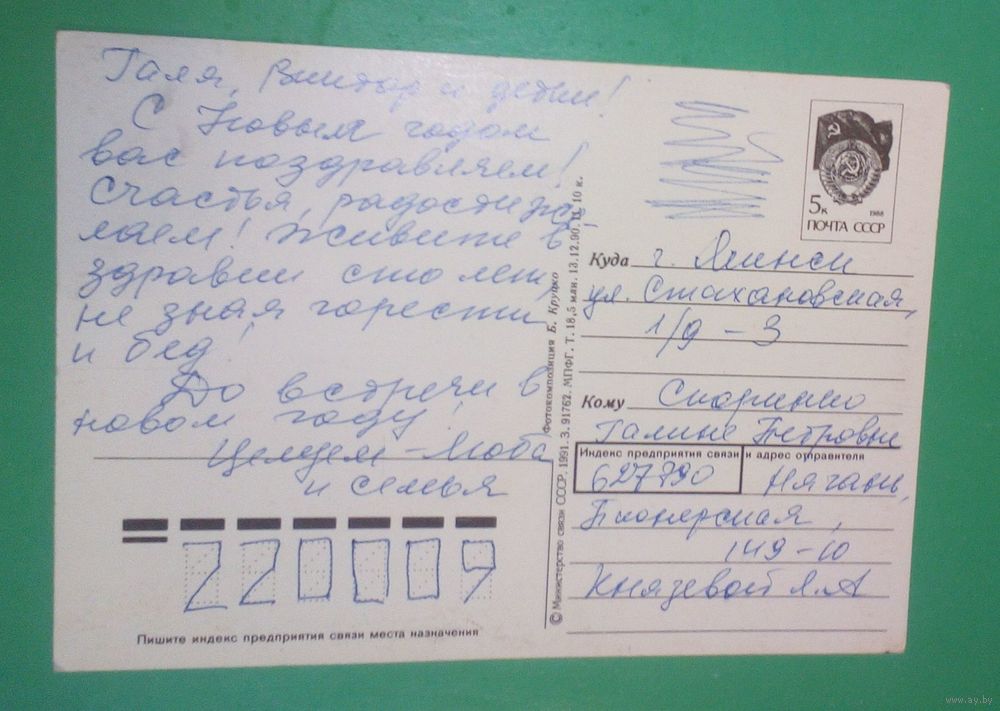 Галя, Виктор и детки!
С Новым годом
вас поздравляем!
Счастья, радости же-
лаем! Живите в
здравии сто лет,
не зная горести
и бед!
До встречи в
новом году!
Целуем - Люба
и семья
220009
Пишите индекс предприятия связи места назначения
© Министерство связи СССР. 1991. З. 91762. МПФГ. Т. 18,5 млн. 13.12.90. Ц. 10 к.
Фотокомпозиция Б. Круцко
5к 1988
ПОЧТА СССР
Куда г. Минск
ул. Стахановская,
1/9 - 3
Кому Скоринко
Галине Петровне
Индекс предприятия связи и адрес отправителя
627790 Нягань,
Пионерская,
149-10
Князевой Л.А
www.ay.by